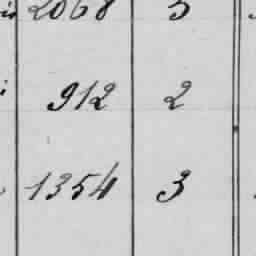 2068 5
912 2
1354 3